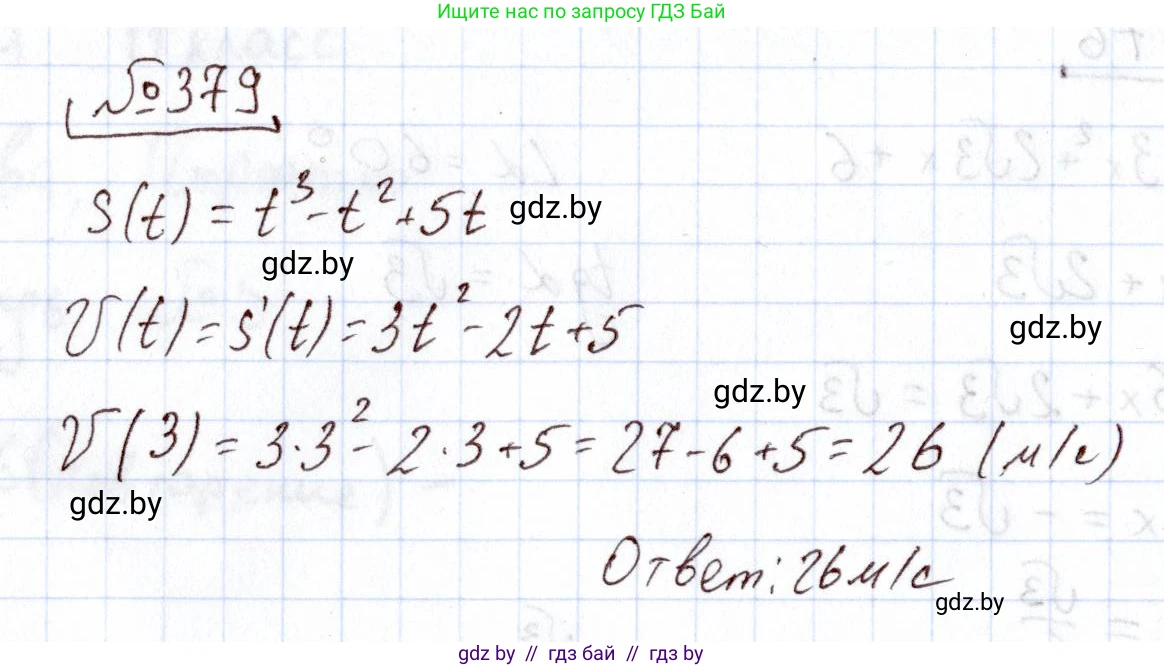 Ищите нас по запросу ГДЗ Бай
№379
s(t) = t³ - t² + 5t gdz.by
gdz.by
v(t) = s'(t) = 3t² - 2t + 5
gdz.by
gdz.by
v(3) = 3·3² - 2·3 + 5 = 27 - 6 + 5 = 26 (м/с)
gdz.by
Ответ: 26 м/с
gdz.by
gdz by // гдз бай // гдз by